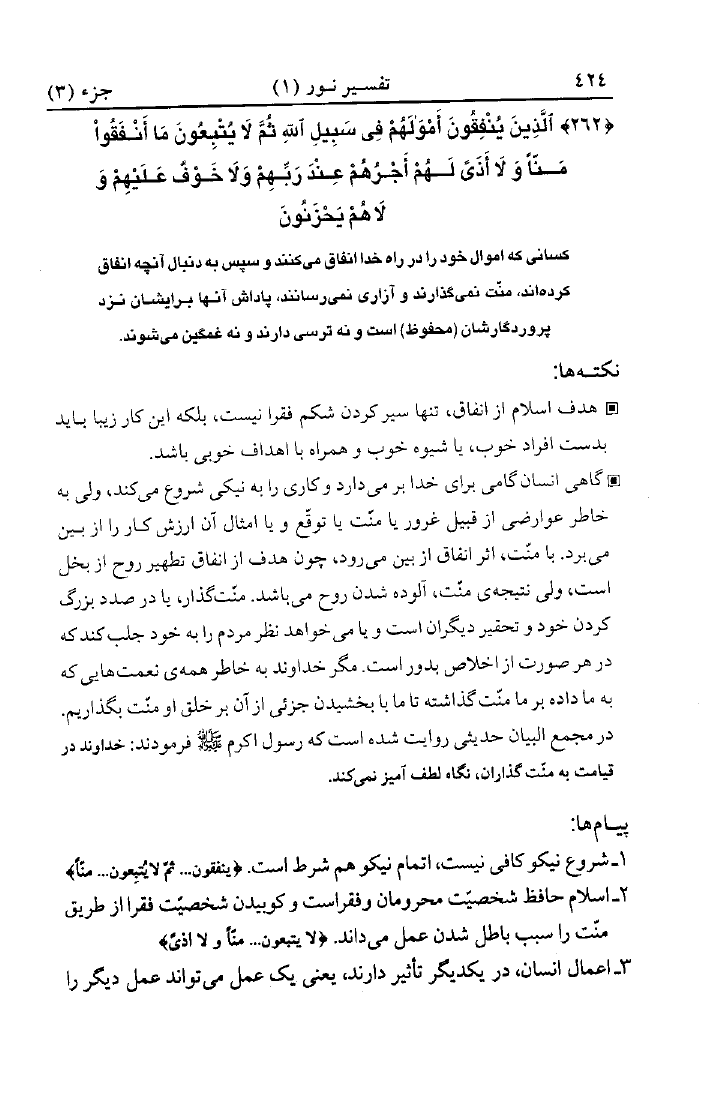 ۴۲۴ تفسیر نور (۱) جزء (۳)
﴿۲۶۲﴾ اَلَّذِينَ يُنْفِقُونَ أَمْوَٰلَهُمْ فِى سَبِيلِ اَللهِ ثُمَّ لَا يُتْبِعُونَ مَا أَنْفَقُواْ
مَنّاً وَ لَا أَذىً لَهُمْ أَجْرُهُمْ عِنْدَ رَبِّهِمْ وَلَا خَوْفٌ عَلَيْهِمْ وَ
لَا هُمْ يَحْزَنُونَ
کسانی که اموال خود را در راه خدا انفاق می‌کنند و سپس به دنبال آنچه انفاق
کرده‌اند، منّت نمی‌گذارند و آزاری نمی‌رسانند، پاداش آنها برایشان نزد
پروردگارشان (محفوظ) است و نه ترسی دارند و نه غمگین می‌شوند.
نکته‌ها:
▣ هدف اسلام از انفاق، تنها سیر کردن شکم فقرا نیست، بلکه این کار زیبا باید
بدست افراد خوب، با شیوه خوب و همراه با اهداف خوبی باشد.
▣ گاهی انسان گامی برای خدا بر می‌دارد و کاری را به نیکی شروع می‌کند، ولی به
خاطر عوارضی از قبیل غرور یا منّت یا توقّع و یا امثال آن ارزش کار را از بین
می‌برد. با منّت، اثر انفاق از بین می‌رود، چون هدف از انفاق تطهیر روح از بخل
است، ولی نتیجه‌ی منّت، آلوده شدن روح می‌باشد. منّت‌گذار، یا در صدد بزرگ
کردن خود و تحقیر دیگران است و یا می‌خواهد نظر مردم را به خود جلب کند که
در هر صورت از اخلاص بدور است. مگر خداوند به خاطر همه‌ی نعمت‌هایی که
به ما داده بر ما منّت گذاشته تا ما با بخشیدن جزئی از آن بر خلق او منّت بگذاریم.
در مجمع البیان حدیثی روایت شده است که رسول اکرم ﷺ فرمودند: خداوند در
قیامت به منّت گذاران، نگاه لطف آمیز نمی‌کند.
پیام‌ها:
۱ـ شروع نیکو کافی نیست، اتمام نیکو هم شرط است. ﴿ینفقون... ثمّ لایُتبِعون... منّاً﴾
۲ـ اسلام حافظ شخصیّت محرومان و فقراست و کوبیدن شخصیّت فقرا از طریق
منّت را سبب باطل شدن عمل می‌داند. ﴿لا یتبعون... منّاً و لا اذیً﴾
۳ـ اعمال انسان، در یکدیگر تأثیر دارند، یعنی یک عمل می‌تواند عمل دیگر را